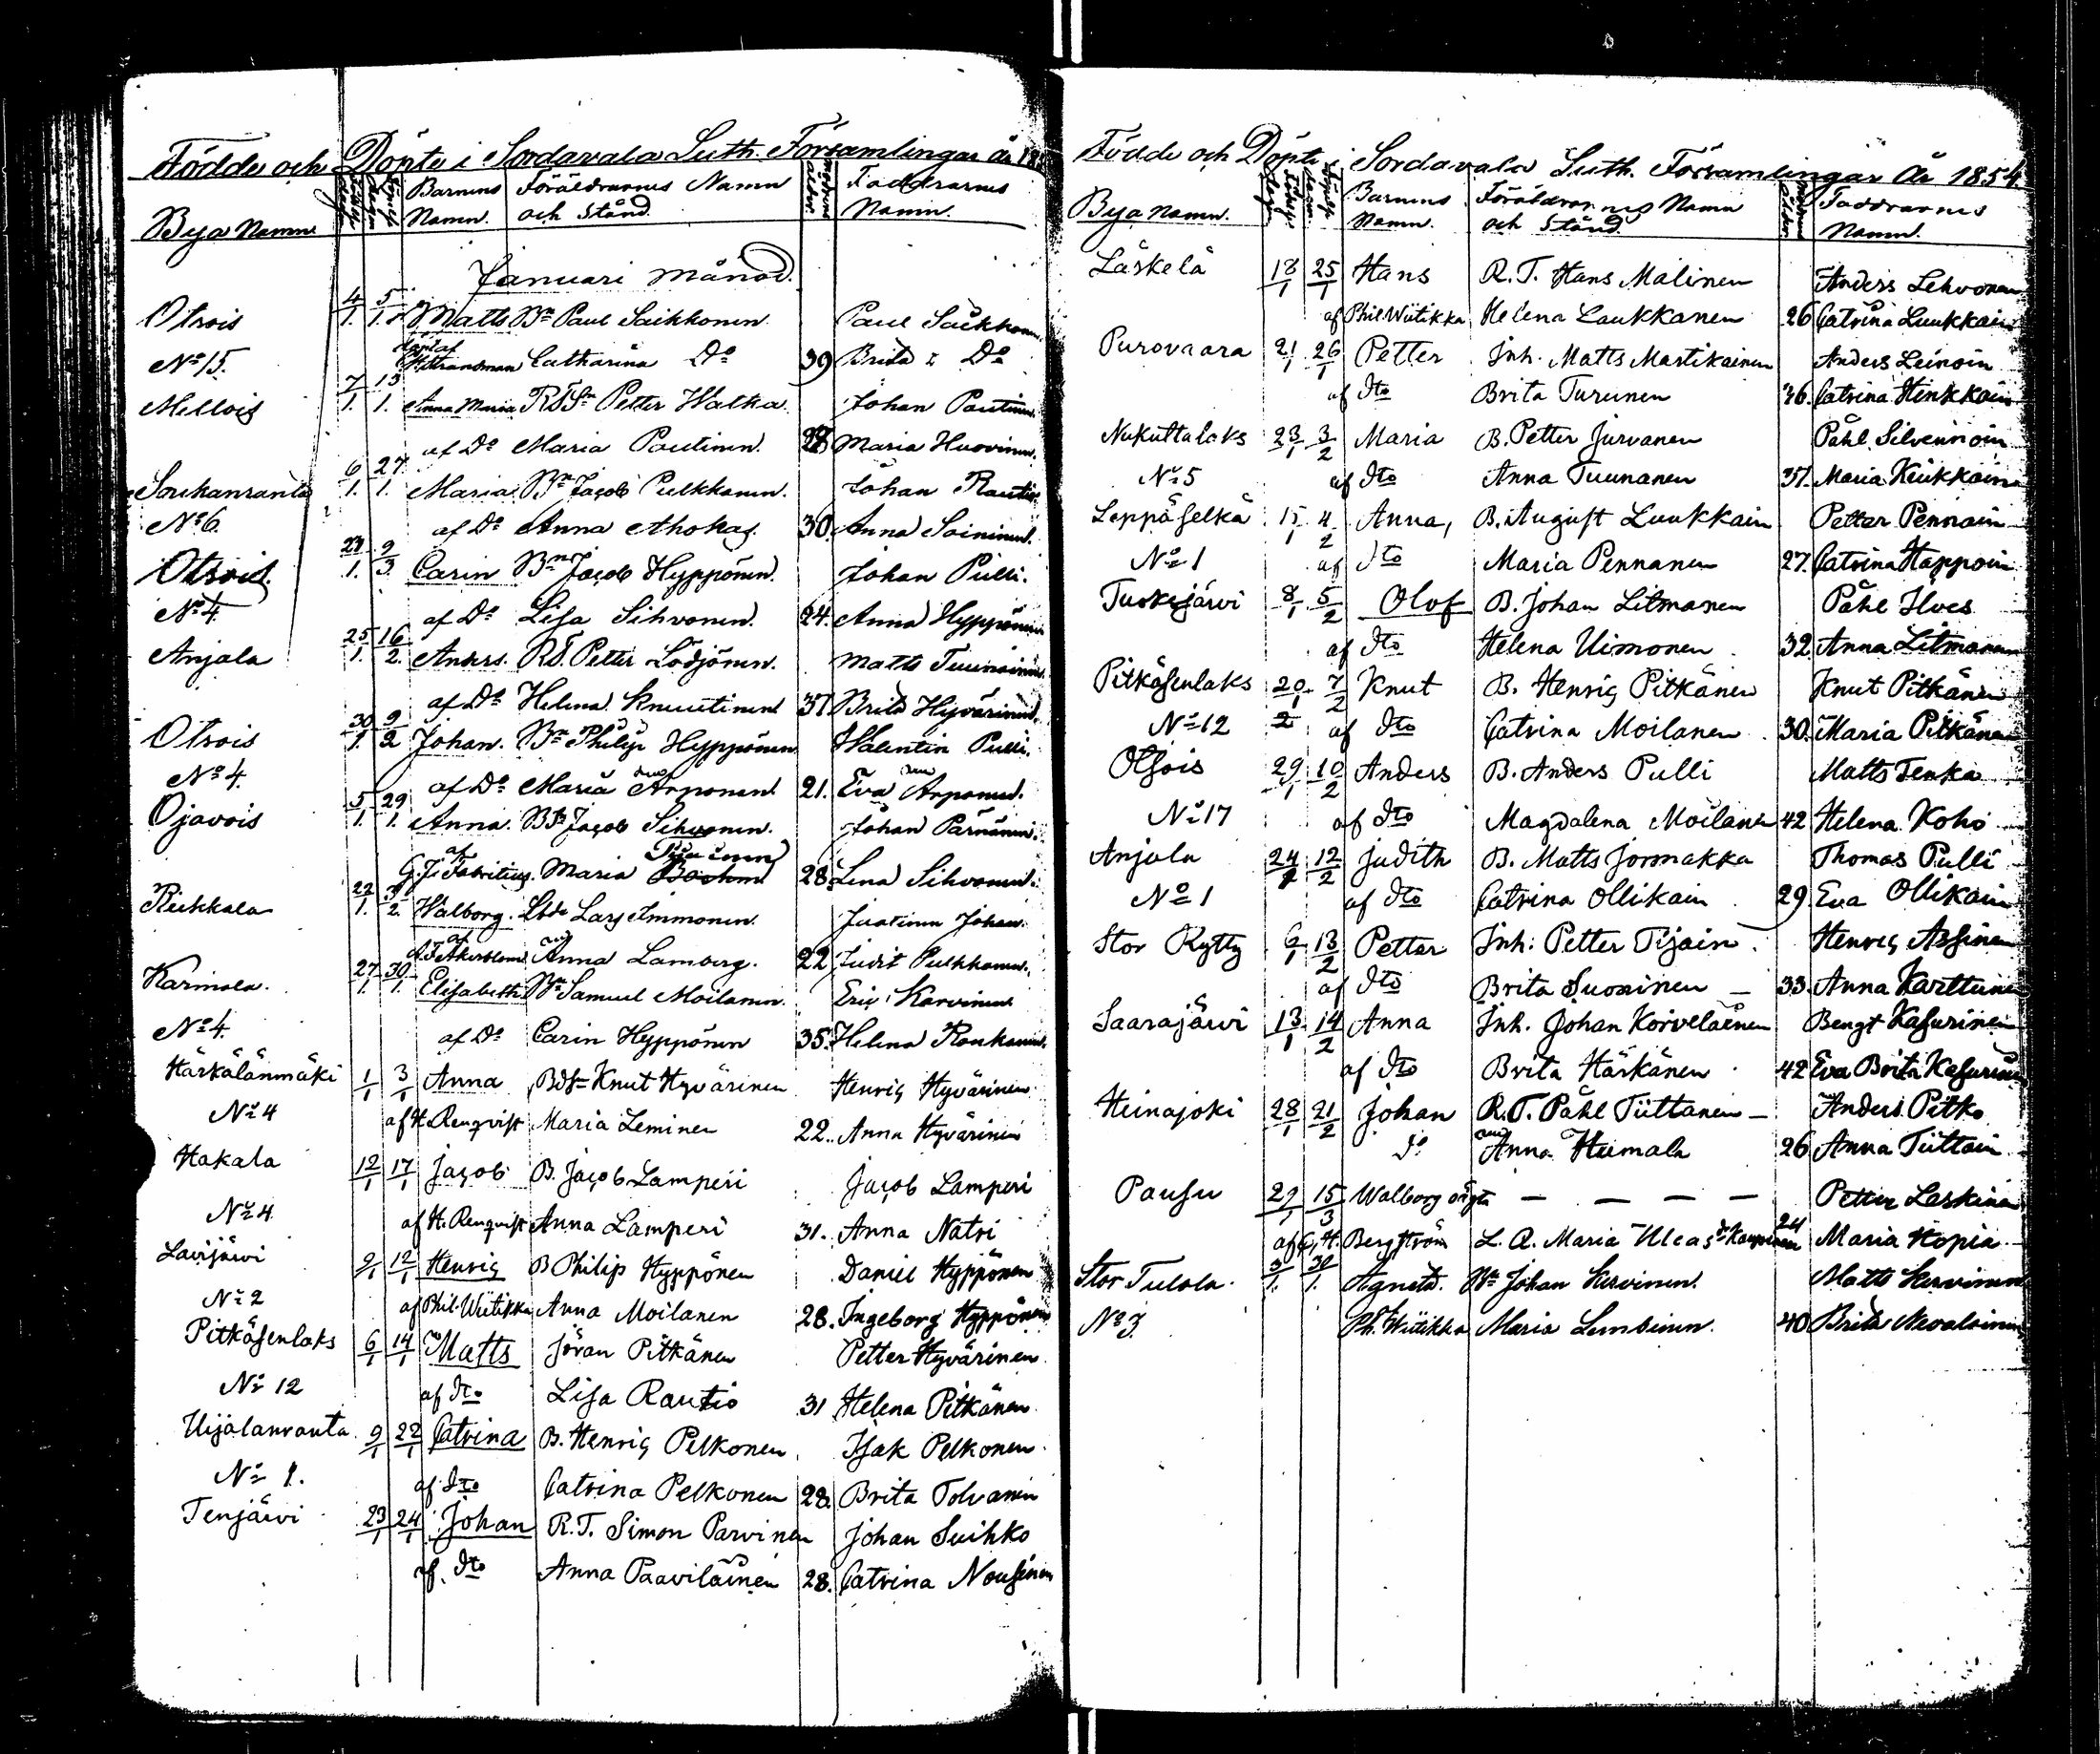 Födde och Döpte i Sordavala Luth. Församlingar år 18
Bya Namn Barnens Namn. Föräldrarnes Namn och Stånd. Faddrarnes Namn.
Januari månad.
Otrois 4/1. 5/1. Matts Bn Paul Saikkonen Paul Saikkonen
No 15. döpt af Strandman Catharina Do 39 Brita Do
Mellois 7/1. 13/1. Anna Maria RTSn Petter Walka Johan Pautinen
af Do Maria Pautinen. 28 Maria Huovinen.
Soukanranta 6/1. 27/1. Maria Bn Jacob Pulkkanen. Johan Rautio
No 6. af Do Anna Ahokas. 30. Anna Soininen.
Otrois 27/1. 9/3 Carin Bn Jacob Hyppönen. Johan Pulli.
No 4. af Do Lisa Sihvonen. 24. Anna Hyppönen
Anjala 25/1. 16/2. Anders. RT. Petter Lodjönen. Matts Tuunainen
af Do Helena Knuutinen 37. Brita Hyvärinen.
Otrois 30/1. 9/2 Johan. Bn Philip Hyppönen Walentin Pulli.
No 4. af Do Maria Arponen 21. Eva Arponen.
Ojavois 5/1. 29/1. Anna. Jacob Sihvonen. Johan Pärnänen.
af G. J. Fabritius. Maria 28. Lena Sihvonen.
Riekkala 22/1. 3/2. Walborg. Lars Immonen. Juatinen Johan.
af Åkerblom Anna Lamberg. 22 Judit Pulkkanen.
Karmala. 27/1. 30/1. Elisabeth Bn Samuel Moilanen Eric Karvinen
No 4. af Do Carin Hyppönen 35. Helena Ronkanen.
Härkälänmäki 1/1 3/1 Anna BdSn Knut Hyvärinen Henric Hyvärinen
No 4 af H. Renqvist Maria Leminen 22. Anna Hyvärinen
Hakala 12/1 17/1 Jacob B. Jacob Lamperi Jacob Lamperi
No 4 af H. Renqvist Anna Lamperi 31. Anna Natri
Lavijärvi 9/1 12/1 Henric B Philip Hyppönen Daniel Hyppönen
No 2 af Phil. Wiitikka Anna Moilanen 28. Ingeborg Hyppönen
Pitkäsenlaks 6/1 14/1 Matts Jöran Pitkänen Petter Hyvärinen
No 12 af Dto Lisa Rautio 31 Helena Pitkänen
Uijalanranta 9/1 22/1 Catrina B. Henric Pelkonen Isak Pelkonen
No 1. af Dto Catrina Pelkonen 28. Brita Tolvanen
Tenjärvi 23/1 24/1 Johan R.T. Simon Parvinen Johan Suihko
af. Dto Anna Paaviläinen 28. Catrina Nousinen
Födde och Döpte i Sordavala Luth. Församlingar År 1854.
Bya namn. Barnens Namn. Föräldrarnes Namn och Stånd. Faddrarnes Namn.
Läskelä 18/1 25/1 Hans R. T. Hans Malinen Anders Lehvonen
af Phil Wiitikka Helena Laukkanen 26 Catrina Luukkain
Purovaara 21/1 26/1 Petter Inh. Matts Martikainen Anders Leinoin
af Dto Brita Turunen 36. Catrina Henkkain
Nukuttalaks 23/1 3/2 Maria B. Petter Jurvanen Påhl Silvennoin
No 5 af Dto Anna Tuunanen 37. Maria Keikkain
Leppäselkä 15/1 4/2 Anna, B. August Luukkain Petter Pennain
No 1 af Dto Maria Pennanen 27. Catrina Happoin
Tuoksjärvi 8/1 5/2 Olof B. Johan Litmanen Påhl Ilves
af Dto Helena Uimonen 32. Anna Litmanen
Pitkäsenlaks 20/1 7/2 Knut B. Henric Pitkänen Knut Pitkänen
No 12 2 af Dto Catrina Moilanen 30. Maria Pitkänen
Otsois 29/1 10/2 Anders B. Anders Pulli Matts Tenka
No 17 af Dto Magdalena Moilanen 42 Helena Koho
Anjala 24/1 12/2 Judith B. Matts Jormakka Thomas Pulli
No 1 af Dto Catrina Ollikain 29. Eva Ollikain
Stor Rytty 6/1 13/2 Petter Inh: Petter Tijain. Henric Assinen
af Dto Brita Suoninen 33. Anna Karttunen
Saarajärvi 13/1 14/2 Anna Inh. Johan Korvelainen Bengt Kasurinen
af Dto Brita Härkänen 42 Eva Brita Kasurinen
Heinajoki 28/1 21/2 Johan R. T. Påhl Tiittanen — Anders Pitko
Do Anna Humala 26 Anna Tiittain
Pausu 29/1 15/3 Walborg oägta — — — — Petter Laskinen
af G. H. Bergström L. Q. Maria 24 Maria Hopia
Stor Tulola. 5/1. 30/1. Agneta. Johan Kervinen. Matts Kervinen
No 3 Ph. Wiitikka Maria Lembinen. 40 Brita Nevalainen